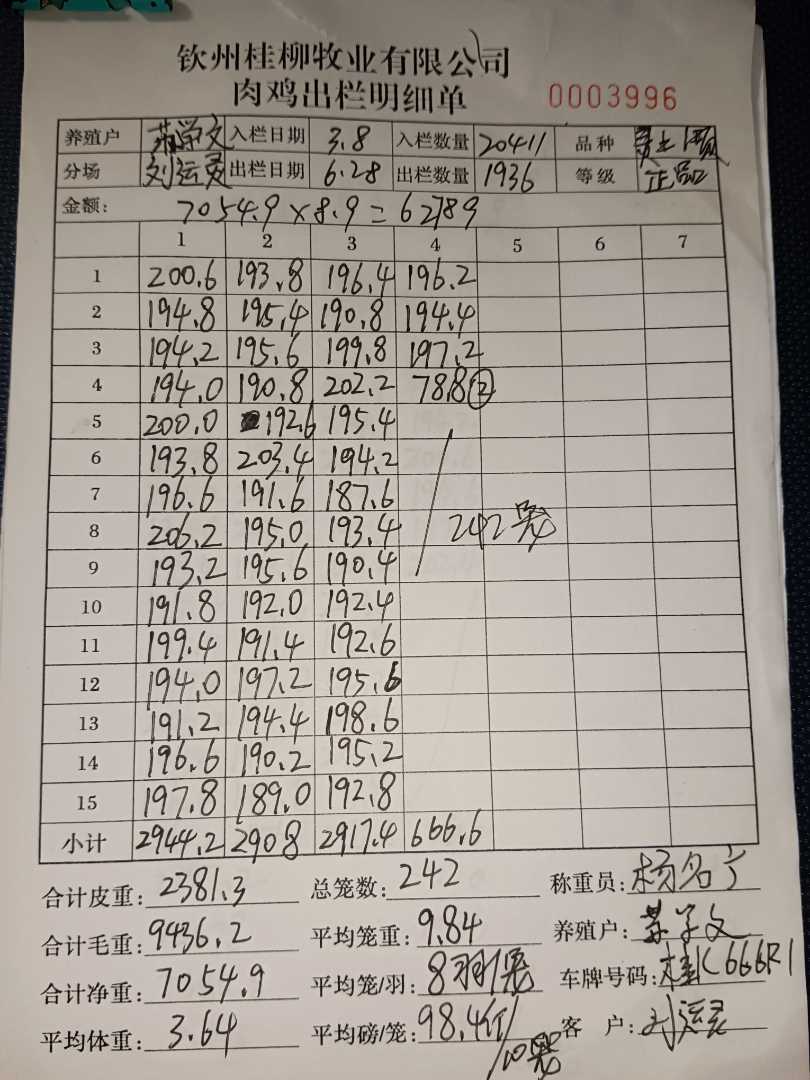 钦州桂柳牧业有限公司
肉鸡出栏明细单 0003996
养殖户 苏学文 入栏日期 3.8 入栏数量 20411 品种
分场 刘运灵 出栏日期 6.28 出栏数量 1936 等级 正品
金额: 7054.9×8.9=62789
1 2 3 4 5 6 7
1 200.6 193.8 196.4 196.2
2 194.8 195.4 190.8 194.4
3 194.2 195.6 199.8 197.2
4 194.0 190.8 202.2 78.8 ②
5 200.0 192.6 195.4
6 193.8 203.4 194.2
7 196.6 191.6 187.6
8 206.2 195.0 193.4 242笼
9 193.2 195.6 190.4
10 191.8 192.0 192.4
11 199.4 191.4 192.6
12 194.0 197.2 195.6
13 191.2 194.4 198.6
14 196.6 190.2 195.2
15 197.8 189.0 192.8
小计 2944.2 2908 2917.4 666.6
合计皮重: 2381.3 总笼数: 242 称重员: 杨名宁
合计毛重: 9436.2 平均笼重: 9.84 养殖户: 苏学文
合计净重: 7054.9 平均笼/羽: 8羽/笼 车牌号码: 桂K666R1
平均体重: 3.64 平均磅/笼: 98.4斤/10笼 客户: 刘运灵